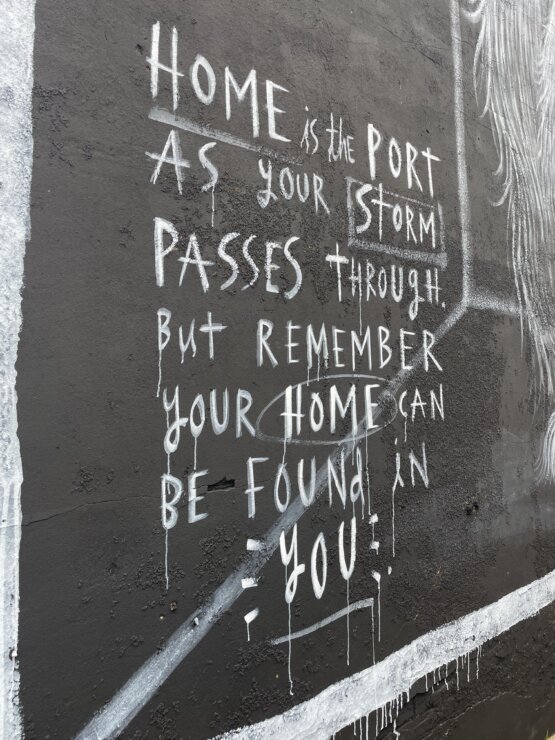 HOME is the PORT
AS YOUR STORM
PASSES THROUGH.
BUT REMEMBER
YOUR HOME CAN
BE FOUND IN
YOU